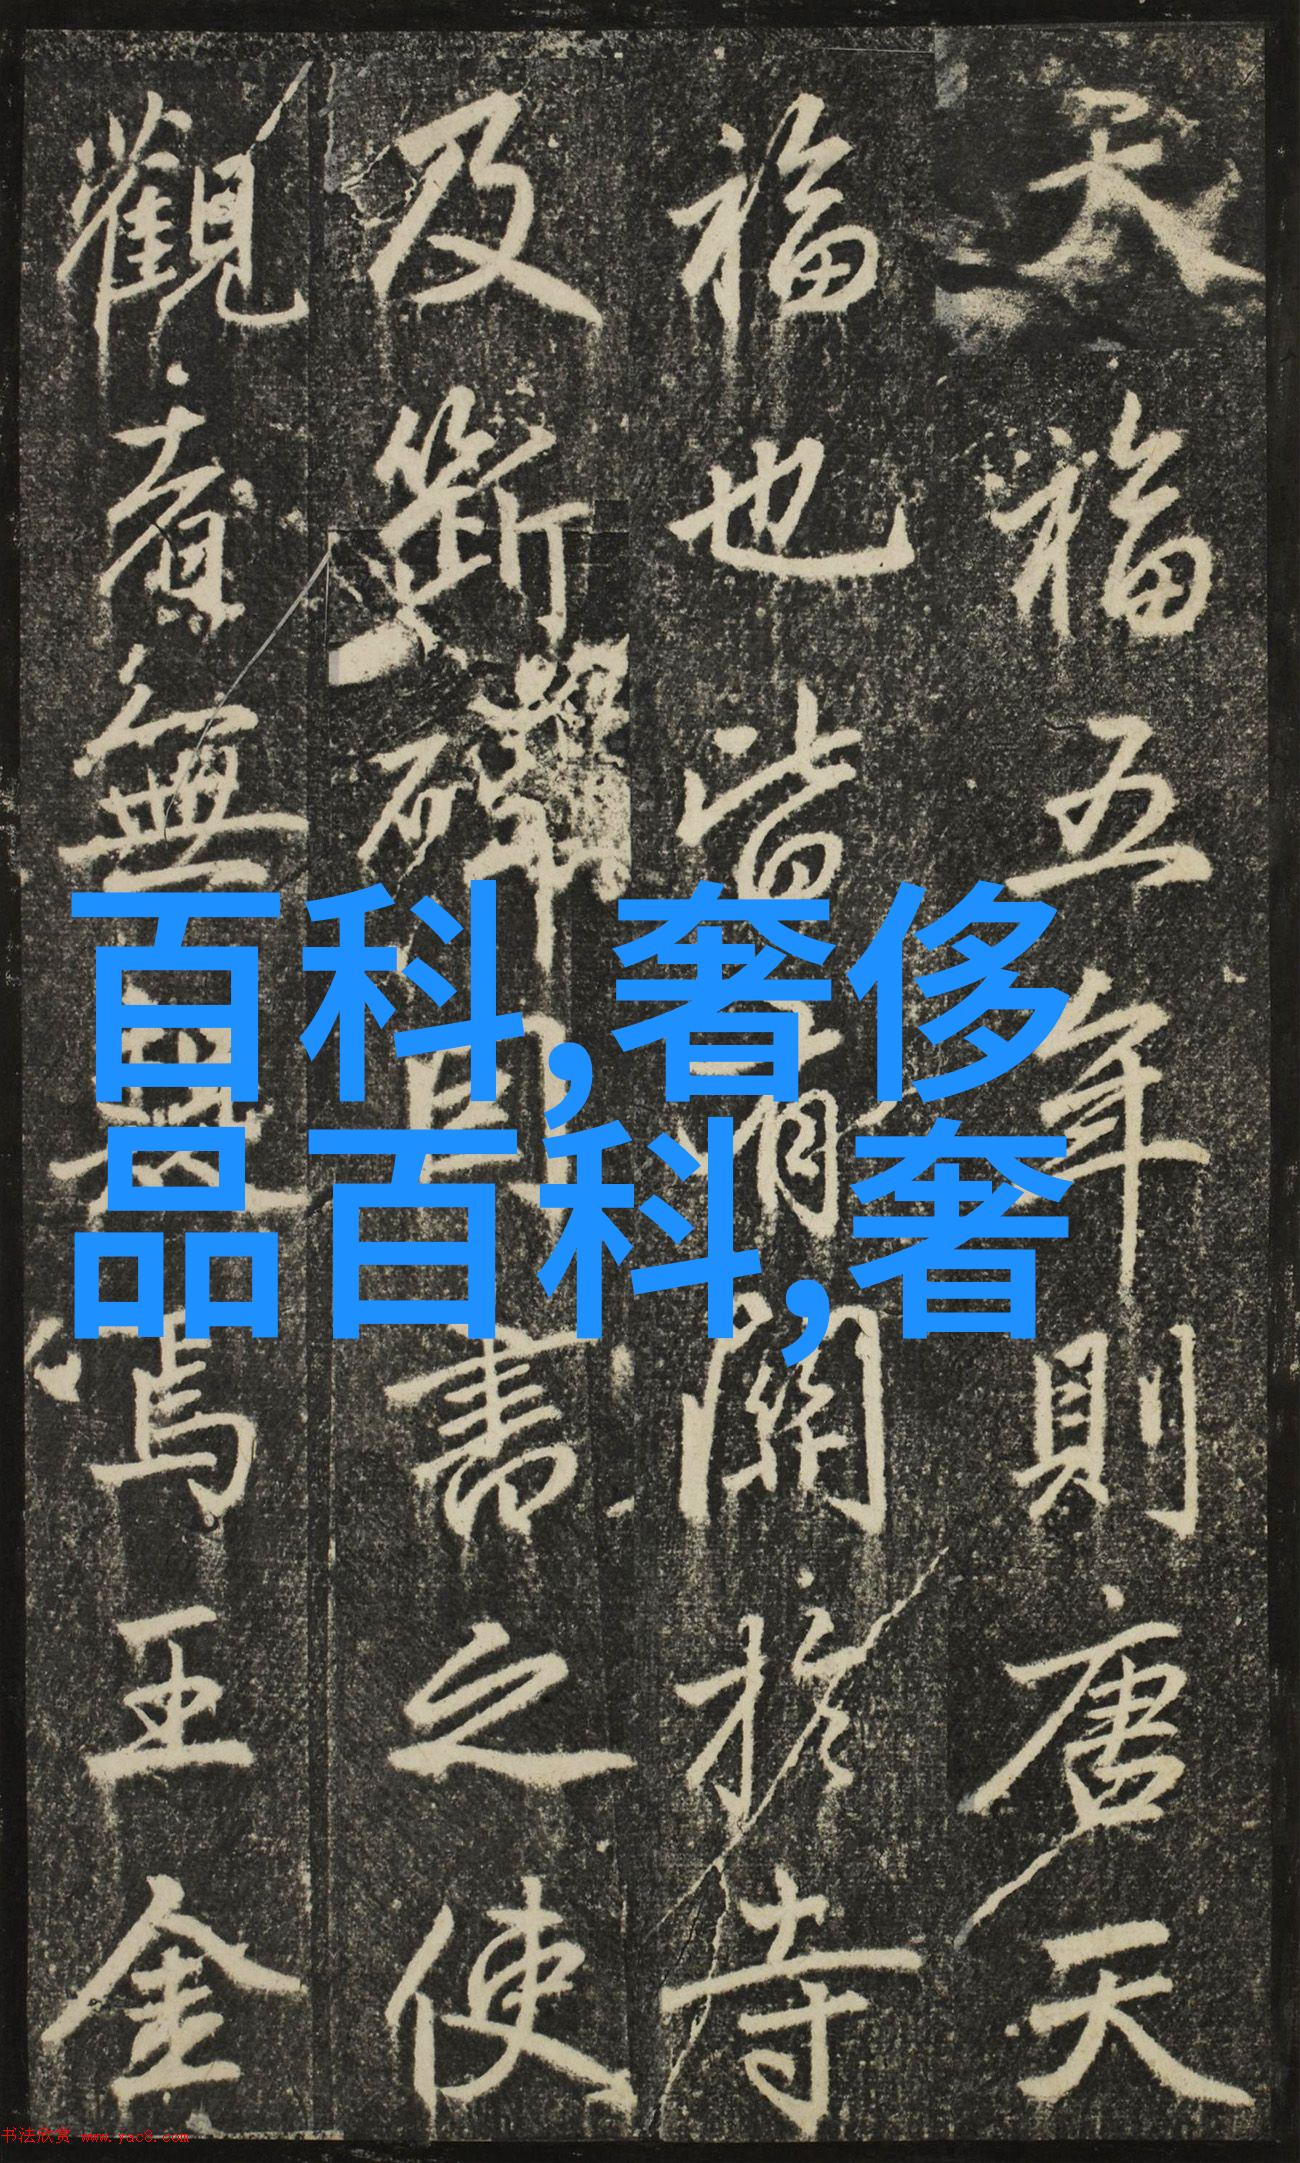 天福五年則唐天
福也皆有關於寺
及斷碑書之使
觀者無焉王金
百科,奢侈
品百科,奢
书法欣赏 www.yac8.com